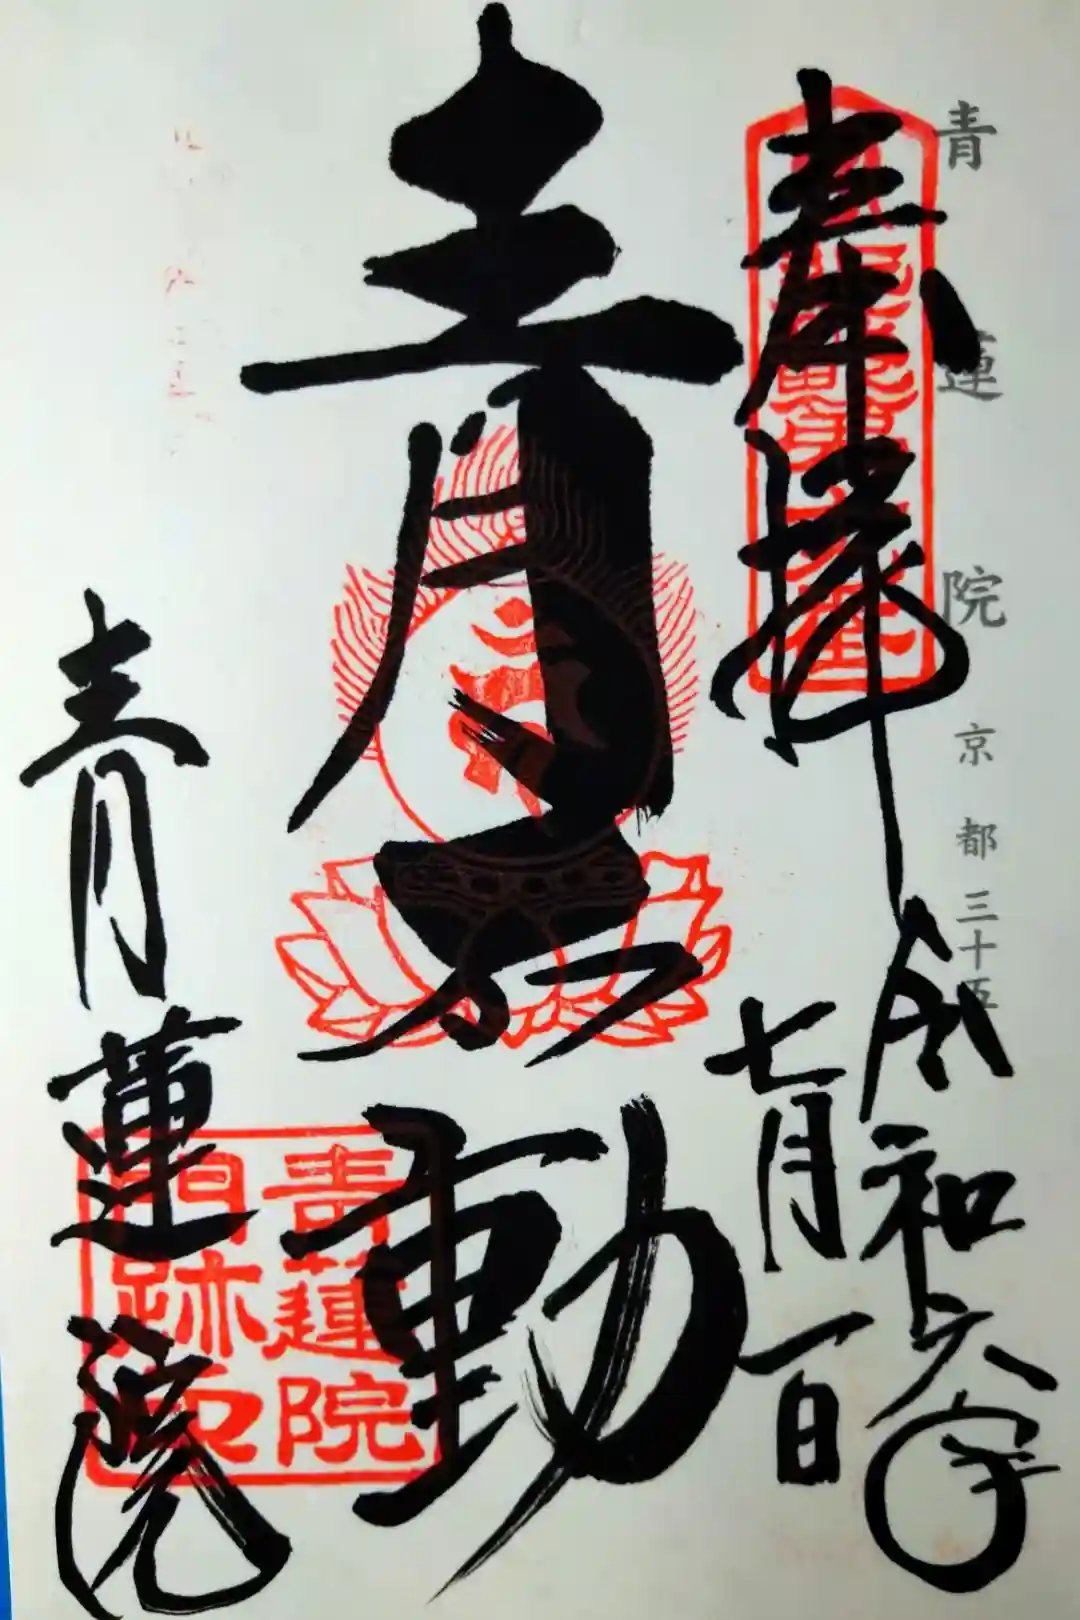 青蓮院 京都三十五
奉拝
令和六年
七月一日
青不動
青蓮院
青蓮院
門跡印